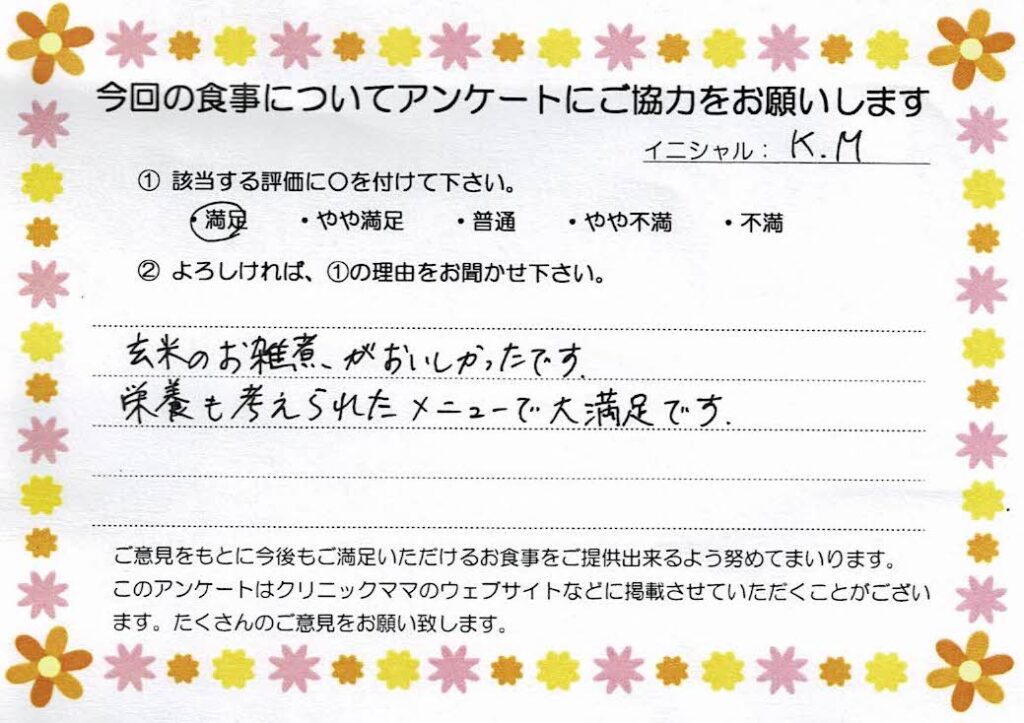 今回の食事についてアンケートにご協力をお願いします
イニシャル： K.M
① 該当する評価に〇を付けて下さい。
・満足 ・やや満足 ・普通 ・やや不満 ・不満
② よろしければ、①の理由をお聞かせ下さい。
玄米のお雑煮、がおいしかったです.
栄養も考えられたメニューで大満足です.
ご意見をもとに今後もご満足いただけるお食事をご提供出来るよう努めてまいります。
このアンケートはクリニックママのウェブサイトなどに掲載させていただくことがござい
ます。たくさんのご意見をお願い致します。